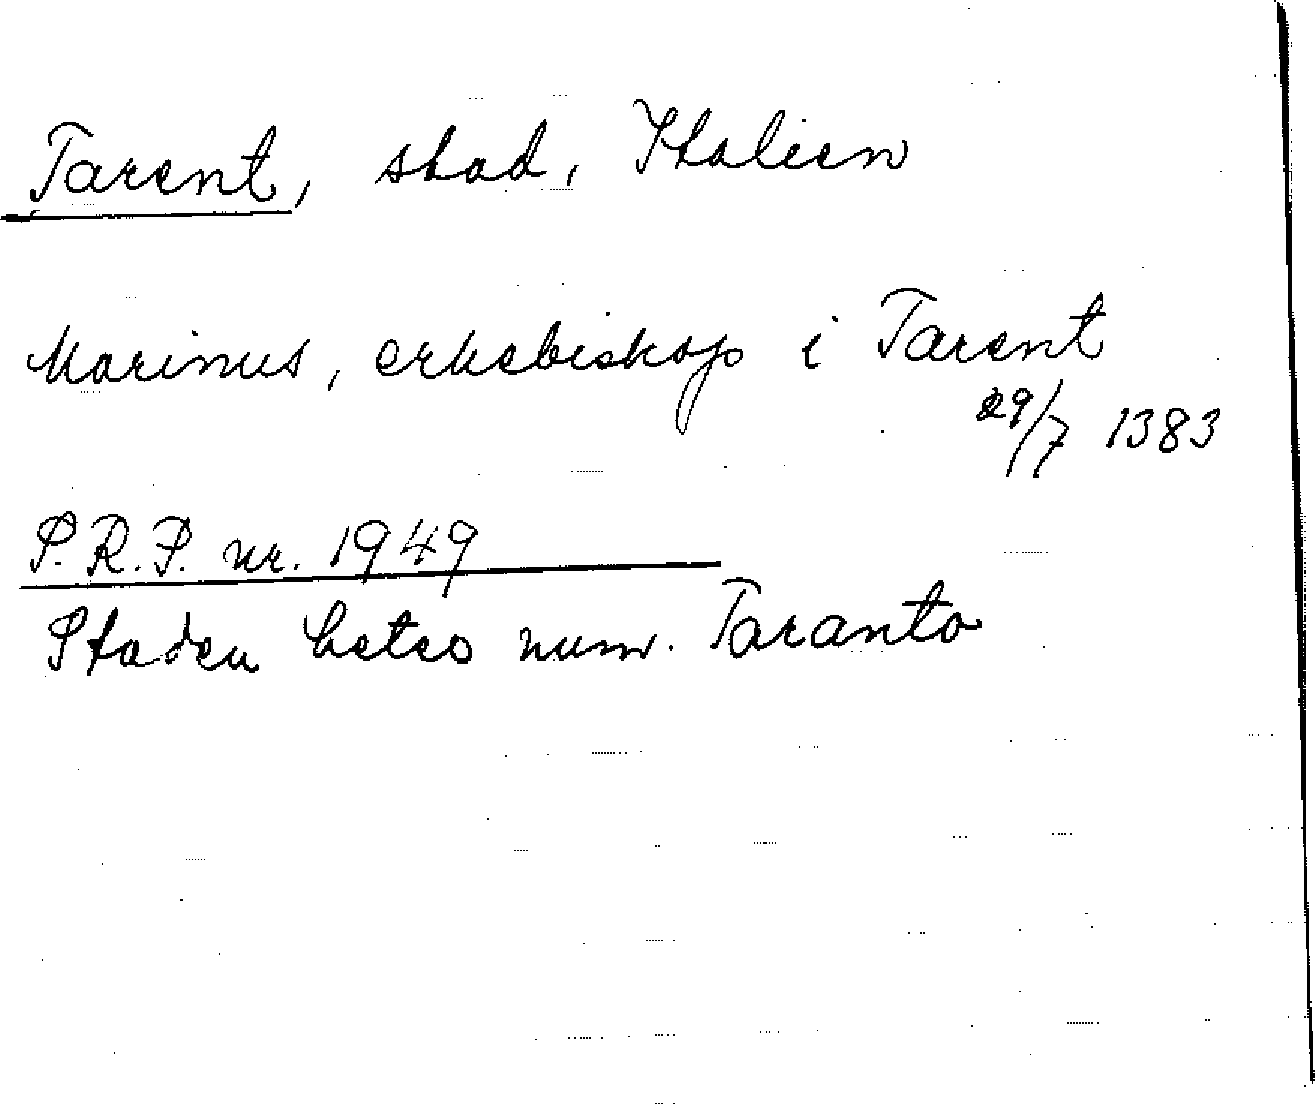 Tarent, stad, Italien
Marinus, erkebiskop i Tarent
29/7 1383
S.R.P. nr. 1949
Staden heter num. Taranto